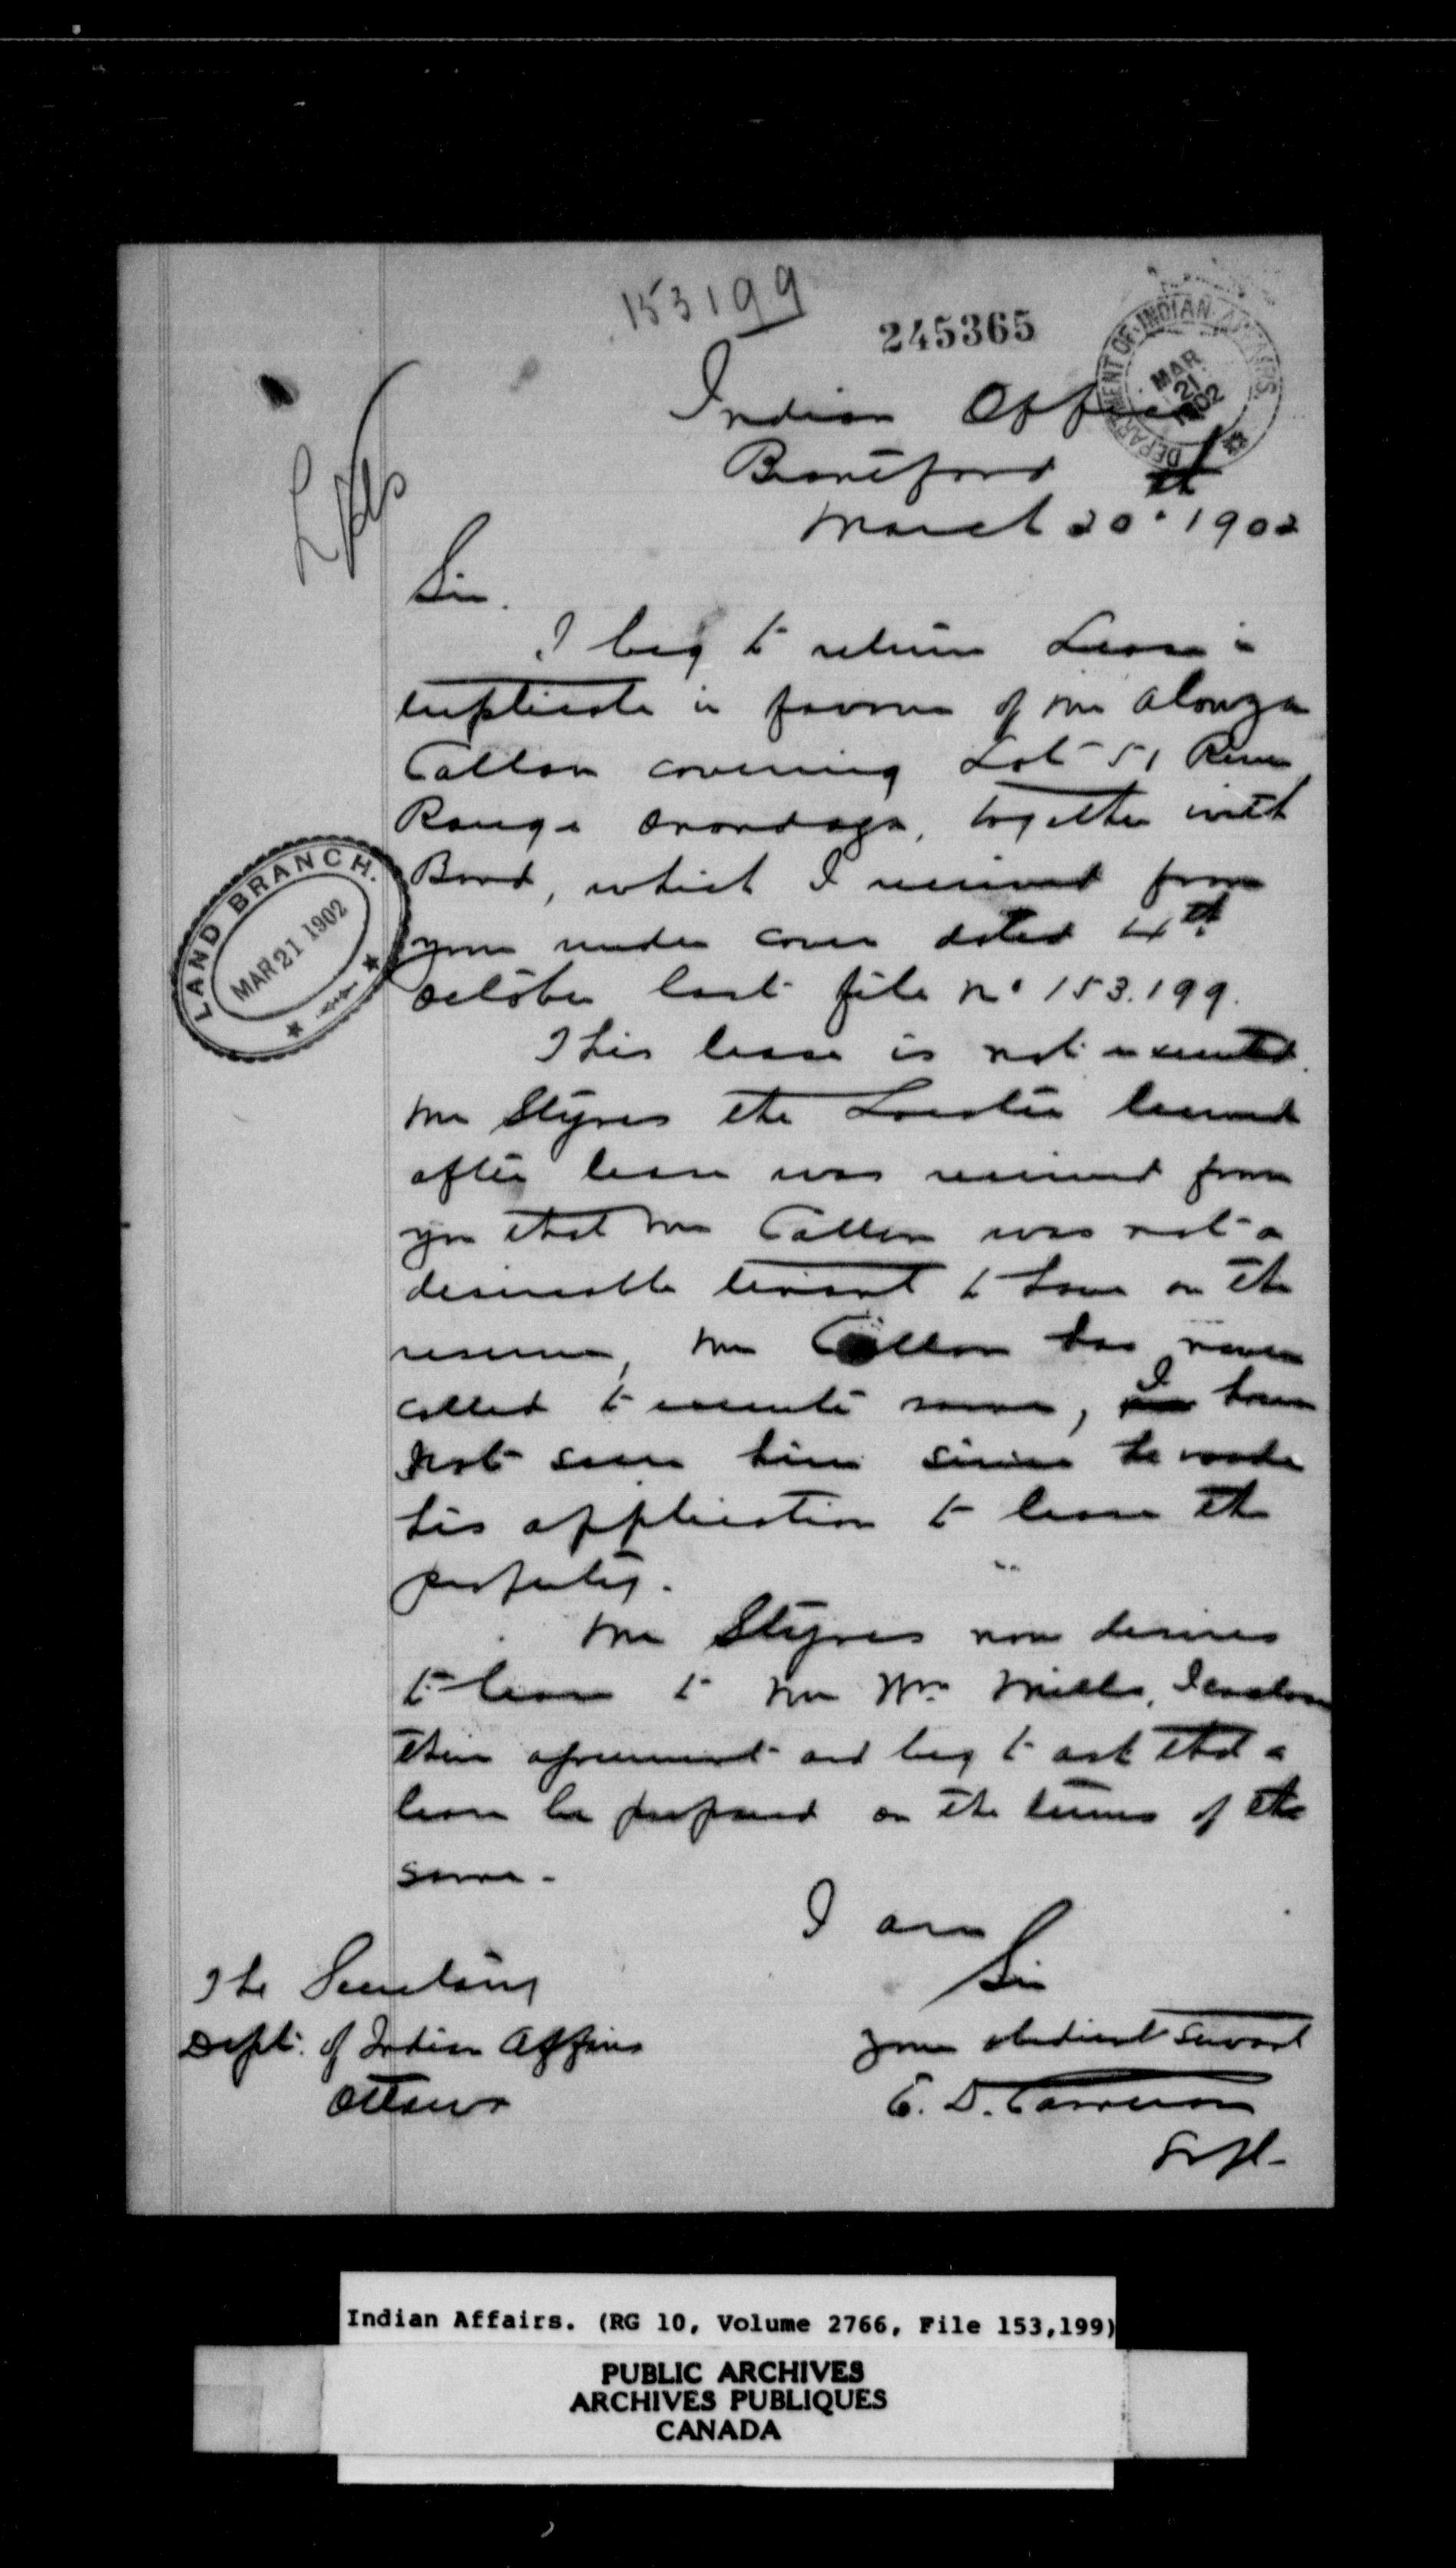 153199
245365
DEPARTMENT OF INDIAN AFFAIRS.
MAR
21
1902
Indian Office
Brantford
March 20th 1902
Sir.
I beg to return Lease in
triplicate in favour of Mr Alonza
Catton covering Lot 51 River
Range Onondaga, together with
Bond, which I received from
you under cover dated 4th
October last file No 153.199.
This lease is not executed.
Mr Styres the Locatee learned
after lease was received from
you that Mr Catton was not a
desireable tenant to have on the
reserve, Mr Catton has never
called to execute same, I have
not seen him since he made
his application to lease the
property.
Mr Styres now desires
to lease to Mr Wm Mills, I enclose
their agreement and beg to ask that a
lease be prepared on the terms of the
same.
I am
Sir
Your obedient Servant
E. D. Cameron
Supt.
The Secretary
Dept. of Indian Affairs
Ottawa
LAND BRANCH.
MAR 21 1902
Indian Affairs. (RG 10, Volume 2766, File 153,199)
PUBLIC ARCHIVES
ARCHIVES PUBLIQUES
CANADA